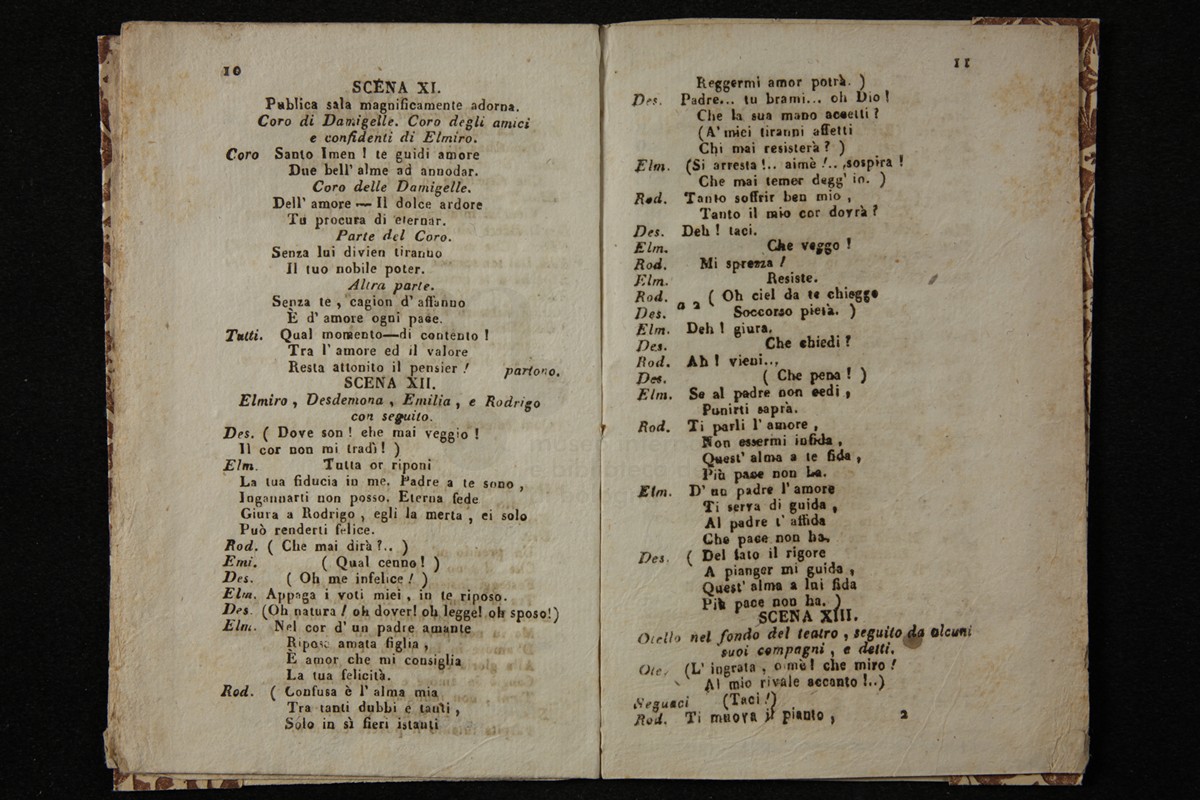 10
SCENA XI.
Publica sala magnificamente adorna.
Coro di Damigelle. Coro degli amici
e confidenti di Elmiro.
Coro Santo Imen ! te guidi amore
Due bell' alme ad annodar.
Coro delle Damigelle.
Dell' amore — Il dolce ardore
Tu procura di eternar.
Parte del Coro.
Senza lui divien tiranno
Il tuo nobile poter.
Altra parte.
Senza te , cagion d' affanno
È d' amore ogni pace.
Tutti. Qual momento—di contento !
Tra l' amore ed il valore
Resta attonito il pensier ! partono.
SCENA XII.
Elmiro , Desdemona , Emilia , e Rodrigo
con seguito.
Des. ( Dove son ! che mai veggio !
Il cor non mi tradì ! )
Elm. Tutta or riponi
La tua fiducia in me. Padre a te sono ,
Ingannarti non posso. Eterna fede
Giura a Rodrigo , egli la merta , ei solo
Può renderti felice.
Rod. ( Che mai dirà ?.. )
Emi. ( Qual cenno ! )
Des. ( Oh me infelice ! )
Elm. Appaga i voti miei , in te riposo.
Des. (Oh natura ! oh dover! oh legge! oh sposo!)
Elm. Nel cor d' un padre amante
Riposa amata figlia ,
È amor che mi consiglia
La tua felicità.
Rod. ( Confusa è l' alma mia
Tra tanti dubbi e tanti ,
Solo in sì fieri istanti
11
Reggermi amor potrà. )
Des. Padre... tu brami... oh Dio !
Che la sua mano accetti ?
(A' miei tiranni affetti
Chi mai resisterà ? )
Elm. (Si arresta !.. aimè !.. sospira !
Che mai temer degg' io. )
Rod. Tanto soffrir ben mio ,
Tanto il mio cor dovrà ?
Des. Deh ! taci.
Elm. Che veggo !
Rod. Mi sprezza !
Elm. Resiste.
Rod. ( Oh ciel da te chieggo
Des. a 2 Soccorso pietà. )
Elm. Deh ! giura.
Des. Che chiedi ?
Rod. Ah ! vieni...
Des. ( Che pena ! )
Elm. Se al padre non cedi ,
Punirti saprà.
Rod. Ti parli l' amore ,
Non essermi infida ,
Quest' alma a te fida ,
Più pace non ha.
Elm. D' un padre l' amore
Ti serva di guida ,
Al padre t' affida
Che pace non ha.
Des. ( Del fato il rigore
A pianger mi guida ,
Quest' alma a lui fida
Più pace non ha. )
SCENA XIII.
Otello nel fondo del teatro , seguito da alcuni
suoi compagni , e detti.
Ote. (L' ingrata , oimè! che miro !
Al mio rivale accanto !..)
Seguaci (Taci !)
Rod. Ti muova il pianto , 2